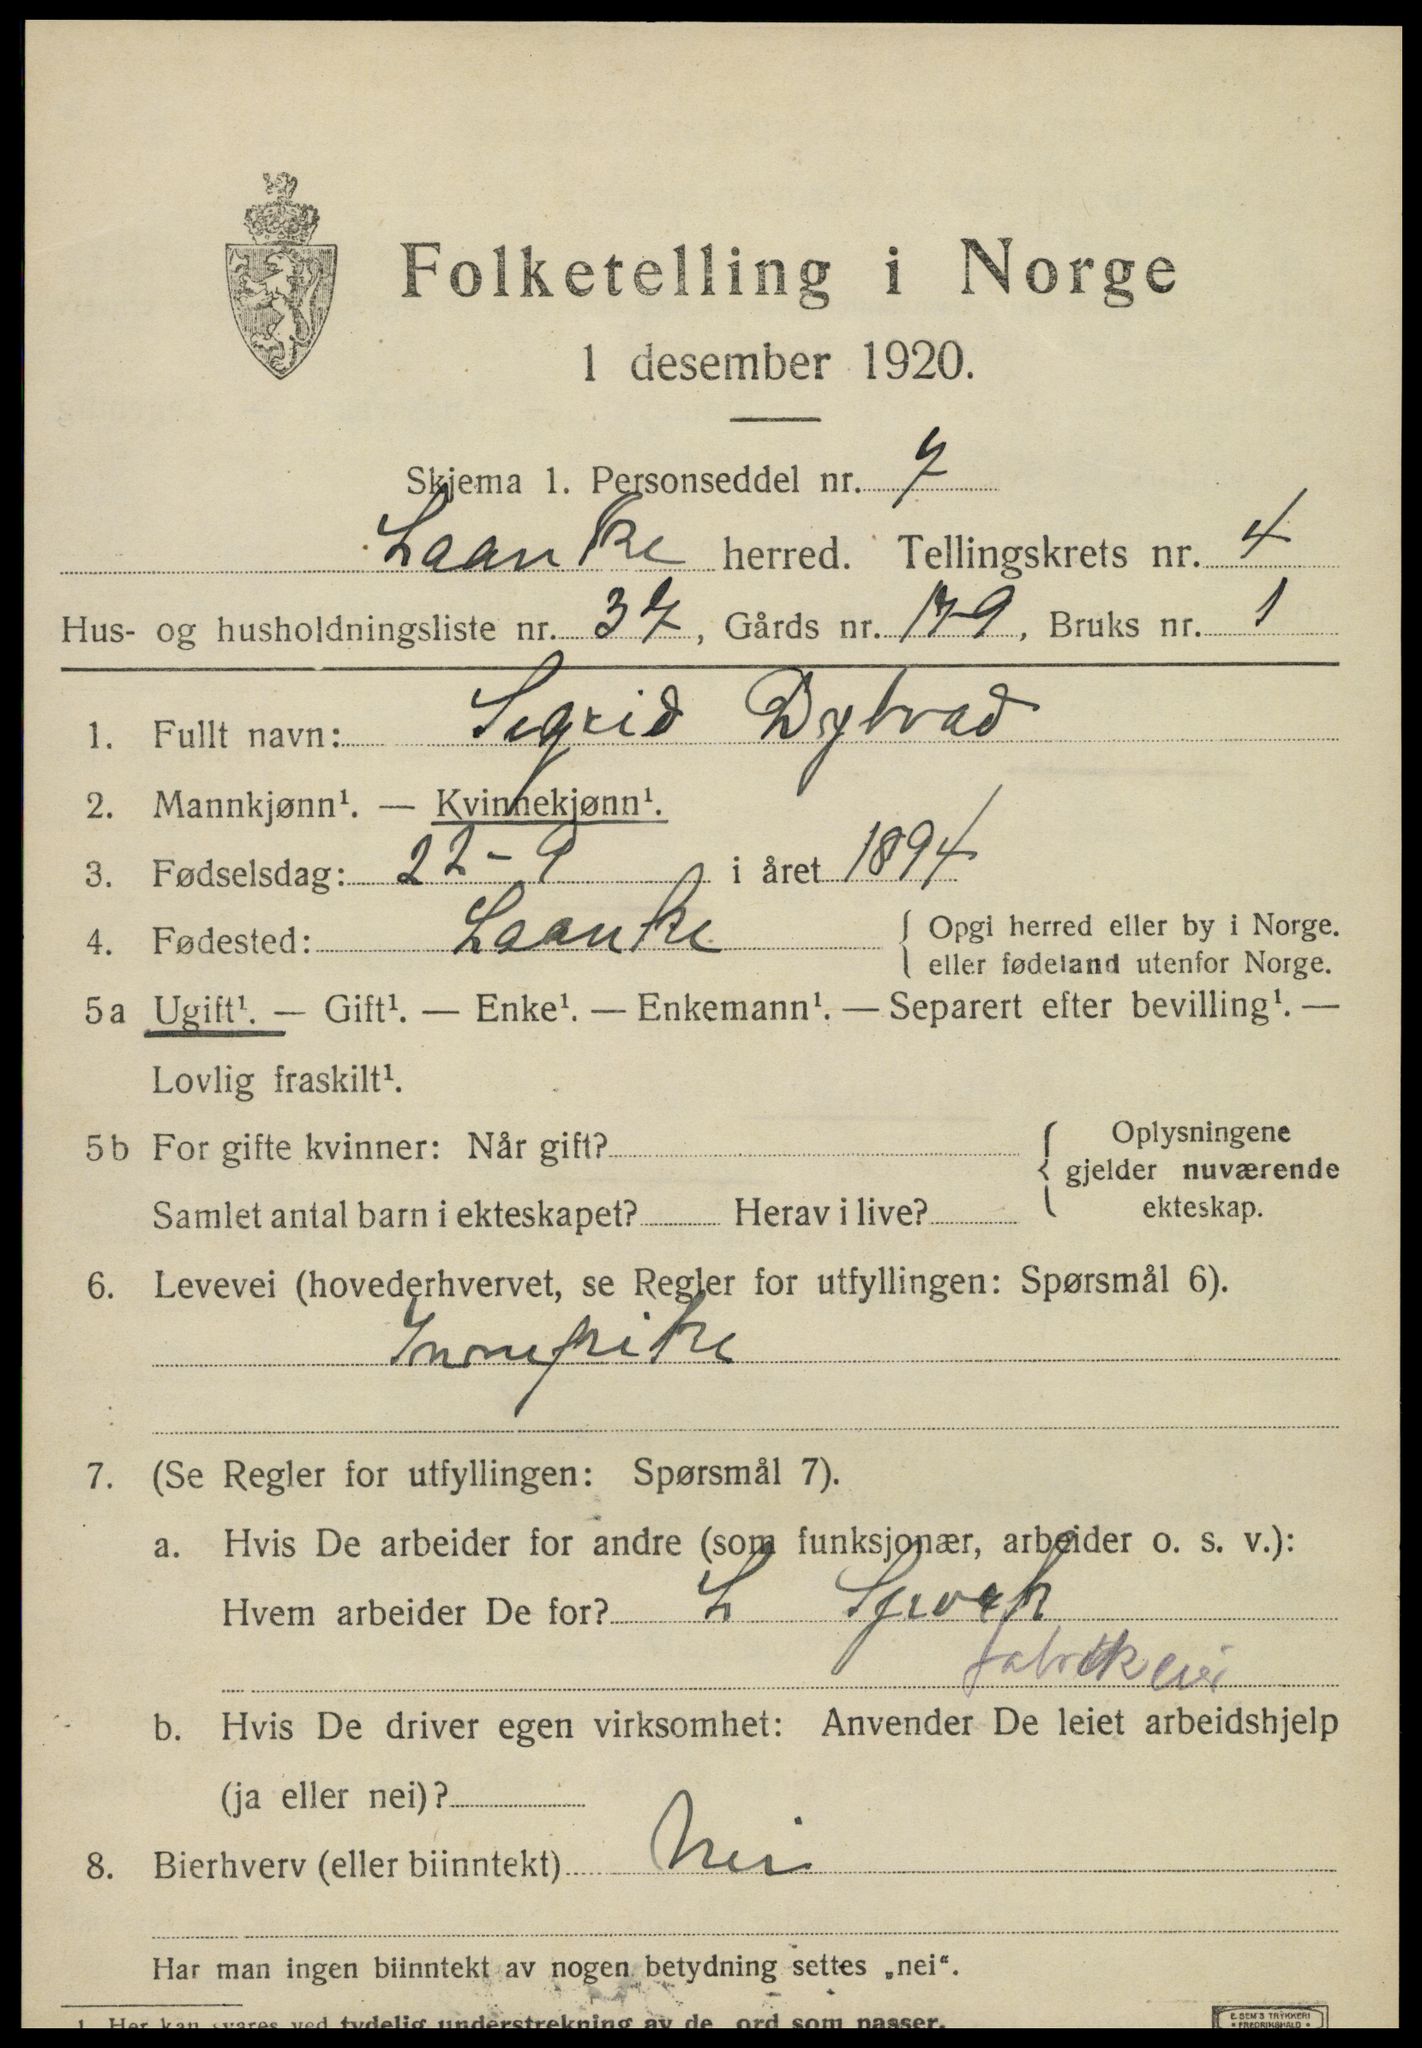 Folketelling i Norge
1 desember 1920.
Skjema 1. Personseddel nr. 7
Laanke herred. Tellingskrets nr. 4
Hus- og husholdningsliste nr. 37, Gårds nr. 179, Bruks nr. 1
1. Fullt navn: Sigrid Dybvad
2. Mannkjønn¹. — Kvinnekjønn¹.
3. Fødselsdag: 22-9 i året 1894
4. Fødested: Laanke { Opgi herred eller by i Norge.
eller fødeland utenfor Norge.
5a Ugift¹. — Gift¹. — Enke¹. — Enkemann¹. — Separert efter bevilling¹. —
Lovlig fraskilt¹.
5b For gifte kvinner: Når gift? { Oplysningene
gjelder nuværende
Samlet antal barn i ekteskapet? Herav i live? ekteskap.
6. Levevei (hovederhvervet, se Regler for utfyllingen: Spørsmål 6).
Innepike
7. (Se Regler for utfyllingen: Spørsmål 7).
a. Hvis De arbeider for andre (som funksjonær, arbeider o. s. v.):
Hvem arbeider De for? L
fabrikkeier
b. Hvis De driver egen virksomhet: Anvender De leiet arbeidshjelp
(ja eller nei)?
8. Bierhverv (eller biinntekt) Nei
Har man ingen biinntekt av nogen betydning settes „nei“.
1. Her kan svares ved tydelig understrekning av de ord som passer.
E. SEM'S TRYKKERI
FREDRIKSHALD